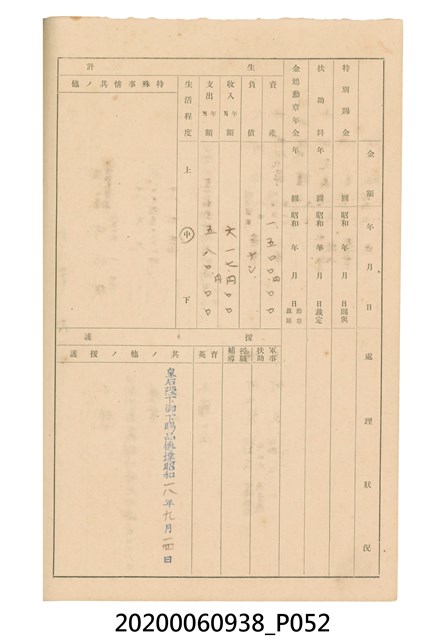 金額 年 月 日 處理狀況
特別賜金 圓 昭和 年 月 日賜與
扶助料 年 圓 昭和 年 月 日裁定
金鵄勳章年金 年 圓 昭和 年 月 日
生計
資產 一五〇〇.〇〇
負債 ナシ
收入年額 六一七円〇〇
支出年額 五八〇.〇〇
生活程度 上 中 下
特殊事情其ノ他
援護
軍事扶助
授職補導
育英
其ノ他ノ援護
皇后陛下御下賜品傳達昭和一八年九月一四日
20200060938_P052